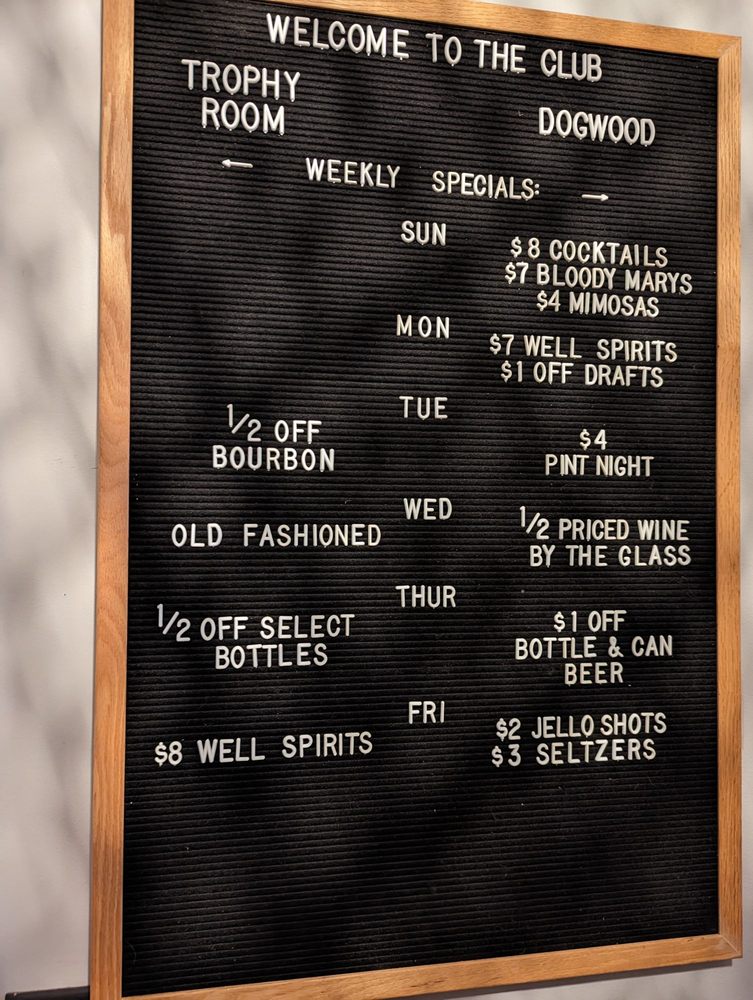 WELCOME TO THE CLUB
TROPHY
ROOM
DOGWOOD
← WEEKLY SPECIALS: →
SUN
$8 COCKTAILS
$7 BLOODY MARYS
$4 MIMOSAS
MON
$7 WELL SPIRITS
$1 OFF DRAFTS
TUE
1/2 OFF
BOURBON
$4
PINT NIGHT
WED
OLD FASHIONED
1/2 PRICED WINE
BY THE GLASS
THUR
1/2 OFF SELECT
BOTTLES
$1 OFF
BOTTLE & CAN
BEER
FRI
$8 WELL SPIRITS
$2 JELLO SHOTS
$3 SELTZERS